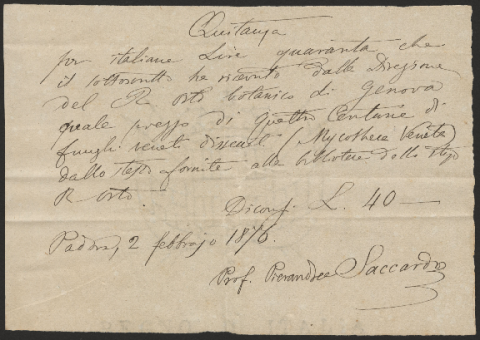 Quitanza
per italiane Lire quaranta che
il sottoscritto ha ricevuto dalla Direzione
del R. Orto botanico di Genova
quale prezzo di quattro Centurie di
funghi veneti disecc. (Mycotheca Veneta)
dallo stesso fornite alla biblioteca dello stesso
R. Orto.
Diconsi L. 40 —
Padova, 2 febbrajo 1876.
Prof. Pierandrea Saccardo